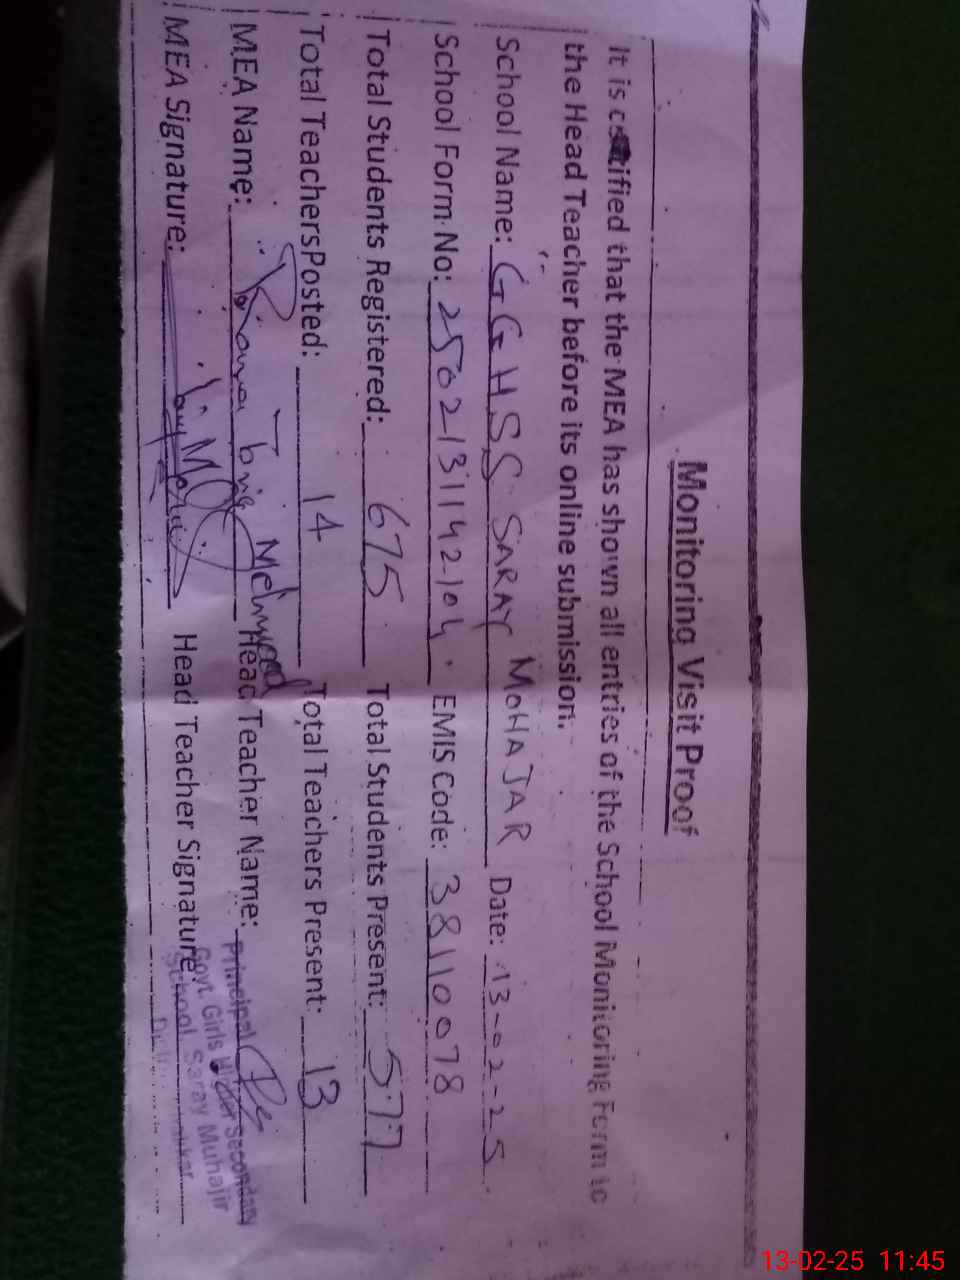 Monitoring Visit Proof
It is certified that the MEA has shown all entries of the School Monitoring Form to
the Head Teacher before its online submission.
School Name: GGHSS SARAY MOHAJAR Date: 13-02-25
School Form No: 2502131142104 EMIS Code: 38110078
Total Students Registered: 675 Total Students Present: 577
Total TeachersPosted: 14 Total Teachers Present: 13
MEA Name: Mehmood Head Teacher Name:
MEA Signature: Head Teacher Signature:
Principal
Govt. Girls Higher Secondary
School Saray Muhajir
13-02-25 11:45